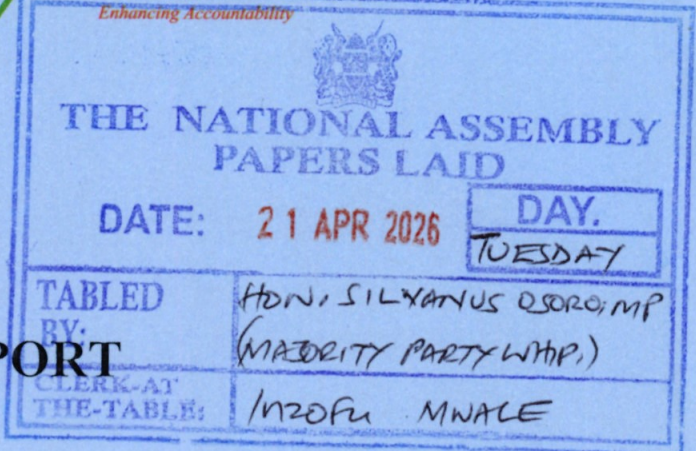 Enhancing Accountability
THE NATIONAL ASSEMBLY
PAPERS LAID
DATE: 21 APR 2026
DAY.
TUESDAY
TABLED BY:
HON. SILVANUS OSORO, MP
(MAJORITY PARTY WHIP.)
PORT
CLERK-AT THE-TABLE:
INZOFU MWALE